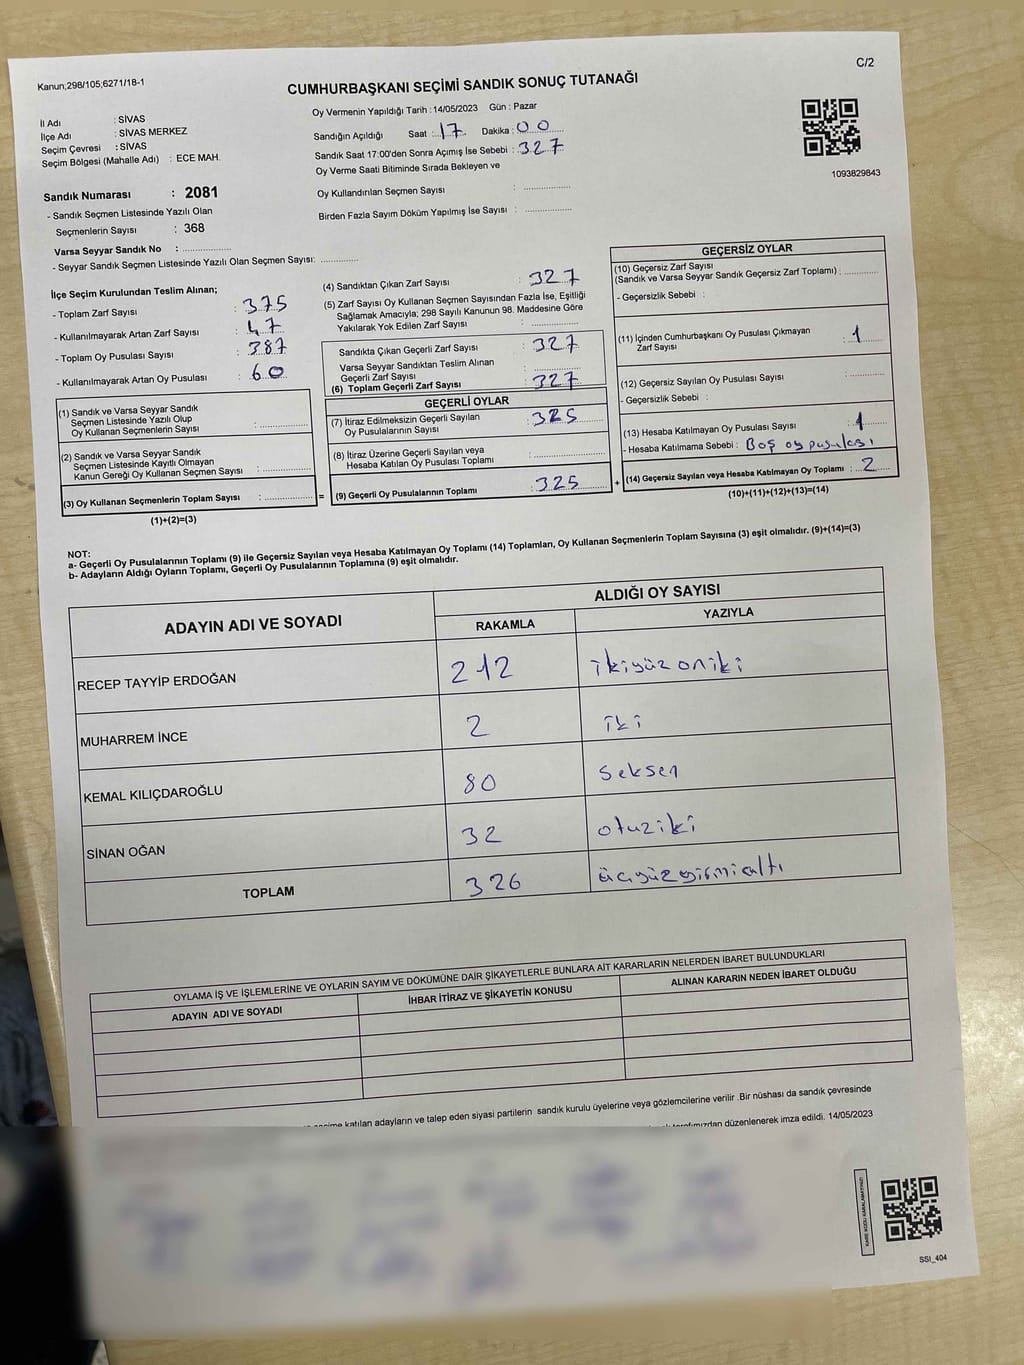 Kanun;298/105;6271/18-1
C/2
CUMHURBAŞKANI SEÇİMİ SANDIK SONUÇ TUTANAĞI
İl Adı : SİVAS
İlçe Adı : SİVAS MERKEZ
Seçim Çevresi : SİVAS
Seçim Bölgesi (Mahalle Adı) : ECE MAH.
Oy Vermenin Yapıldığı Tarih : 14/05/2023 Gün : Pazar
Sandığın Açıldığı Saat : 17 Dakika : 00
Sandık Saat 17:00'den Sonra Açımış İse Sebebi : 327
Oy Verme Saati Bitiminde Sırada Bekleyen ve
Oy Kullandırılan Seçmen Sayısı :
Birden Fazla Sayım Döküm Yapılmış İse Sayısı :
1093829843
Sandık Numarası : 2081
- Sandık Seçmen Listesinde Yazılı Olan
Seçmenlerin Sayısı : 368
Varsa Seyyar Sandık No :
- Seyyar Sandık Seçmen Listesinde Yazılı Olan Seçmen Sayısı:
İlçe Seçim Kurulundan Teslim Alınan;
- Toplam Zarf Sayısı : 375
- Kullanılmayarak Artan Zarf Sayısı : 47
- Toplam Oy Pusulası Sayısı : 387
- Kullanılmayarak Artan Oy Pusulası : 60
(1) Sandık ve Varsa Seyyar Sandık
Seçmen Listesinde Yazılı Olup
Oy Kullanan Seçmenlerin Sayısı :
(2) Sandık ve Varsa Seyyar Sandık
Seçmen Listesinde Kayıtlı Olmayan
Kanun Gereği Oy Kullanan Seçmen Sayısı :
(3) Oy Kullanan Seçmenlerin Toplam Sayısı : =
(1)+(2)=(3)
(4) Sandıktan Çıkan Zarf Sayısı : 327
(5) Zarf Sayısı Oy Kullanan Seçmen Sayısından Fazla İse, Eşitliği
Sağlamak Amacıyla; 298 Sayılı Kanunun 98. Maddesine Göre
Yakılarak Yok Edilen Zarf Sayısı :
Sandıkta Çıkan Geçerli Zarf Sayısı : 327
Varsa Seyyar Sandıktan Teslim Alınan
Geçerli Zarf Sayısı :
(6) Toplam Geçerli Zarf Sayısı : 327
GEÇERLİ OYLAR
(7) İtiraz Edilmeksizin Geçerli Sayılan
Oy Pusulalarının Sayısı : 325
(8) İtiraz Üzerine Geçerli Sayılan veya
Hesaba Katılan Oy Pusulası Toplamı :
(9) Geçerli Oy Pusulalarının Toplamı : 325 +
GEÇERSİZ OYLAR
(10) Geçersiz Zarf Sayısı
(Sandık ve Varsa Seyyar Sandık Geçersiz Zarf Toplamı) :
- Geçersizlik Sebebi :
(11) İçinden Cumhurbaşkanı Oy Pusulası Çıkmayan
Zarf Sayısı : 1
(12) Geçersiz Sayılan Oy Pusulası Sayısı :
- Geçersizlik Sebebi :
(13) Hesaba Katılmayan Oy Pusulası Sayısı : 1
- Hesaba Katılmama Sebebi : Boş oy pusulası
(14) Geçersiz Sayılan veya Hesaba Katılmayan Oy Toplamı : 2
(10)+(11)+(12)+(13)=(14)
NOT:
a- Geçerli Oy Pusulalarının Toplamı (9) ile Geçersiz Sayılan veya Hesaba Katılmayan Oy Toplamı (14) Toplamları, Oy Kullanan Seçmenlerin Toplam Sayısına (3) eşit olmalıdır. (9)+(14)=(3)
b- Adayların Aldığı Oyların Toplamı, Geçerli Oy Pusulalarının Toplamına (9) eşit olmalıdır.
ADAYIN ADI VE SOYADI
ALDIĞI OY SAYISI
RAKAMLA YAZIYLA
RECEP TAYYİP ERDOĞAN 212 ikiyüz oniki
MUHARREM İNCE 2 iki
KEMAL KILIÇDAROĞLU 80 Seksen
SİNAN OĞAN 32 otuziki
TOPLAM 326 üçyüzyirmialtı
OYLAMA İŞ VE İŞLEMLERİNE VE OYLARIN SAYIM VE DÖKÜMÜNE DAİR ŞİKAYETLERLE BUNLARA AİT KARARLARIN NELERDEN İBARET BULUNDUKLARI
ADAYIN ADI VE SOYADI İHBAR İTİRAZ VE ŞİKAYETİN KONUSU ALINAN KARARIN NEDEN İBARET OLDUĞU
katılan adayların ve talep eden siyasi partilerin sandık kurulu üyelerine veya gözlemcilerine verilir .Bir nüshası da sandık çevresinde
düzenlenerek imza edildi. 14/05/2023
KARE KODU KARALAMAYINIZ!
SSI_404